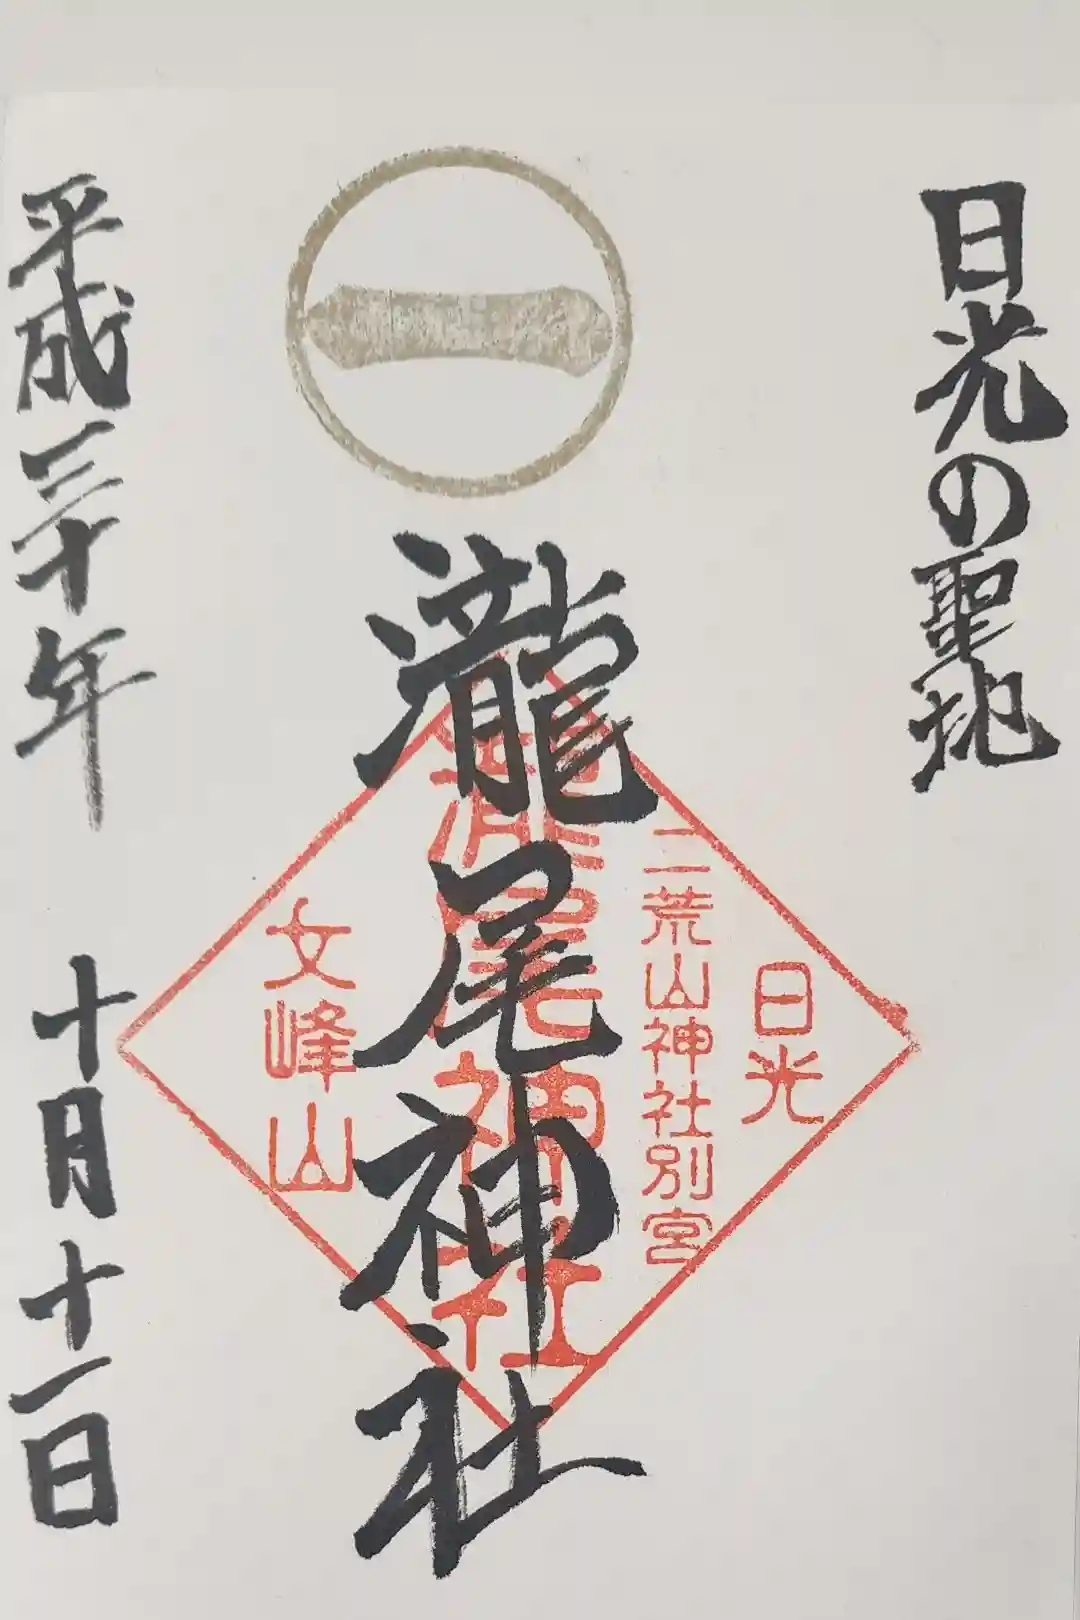 日光の聖地
一
瀧尾神社
日光
二荒山神社別宮
瀧尾神社
女峰山
平成三十年 十月十一日